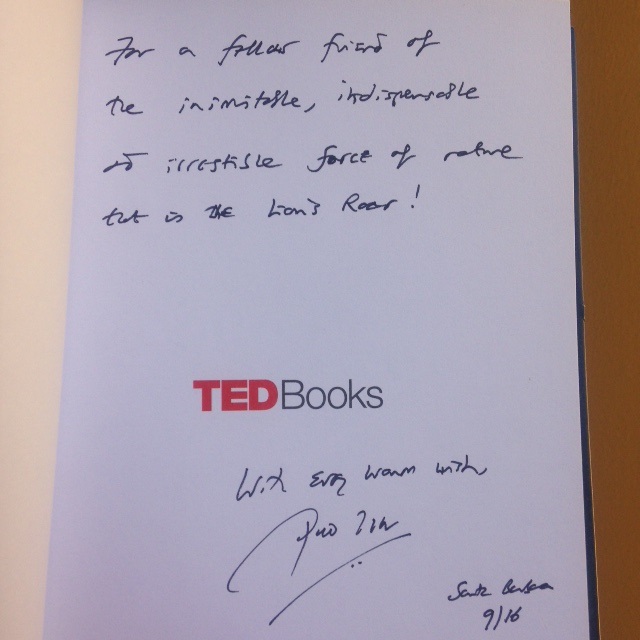 For a fellow friend of
the inimitable, indispensable
and irresistible force of nature
that is the Lion's Roar!
TEDBooks
With every warm wish
Santa Barbara
9/16